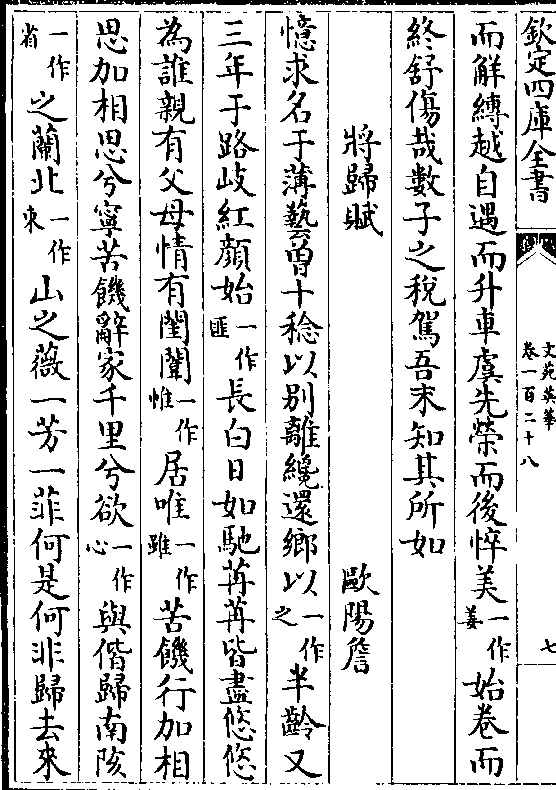 欽定四庫全書
文苑英華
卷一百二十八
七
而解縛越自遇而升車虞先榮而後悴美一作姜始卷而
終舒傷哉數子之稅駕吾未知其所如
將歸賦 歐陽詹
憶求名于薄藝曽十稔以别離纔還鄉以一作之半齡又
三年于路歧紅顔始一作匪長白日如馳苒苒皆盡悠悠
為誰親有父母情有閨闈一作惟居唯一作雖苦饑行加相
思加相思兮寧苦饑辭家千里兮欲一作心與偕歸南陔
一作省之蘭北一作來山之薇一芳一菲何是何非歸去來